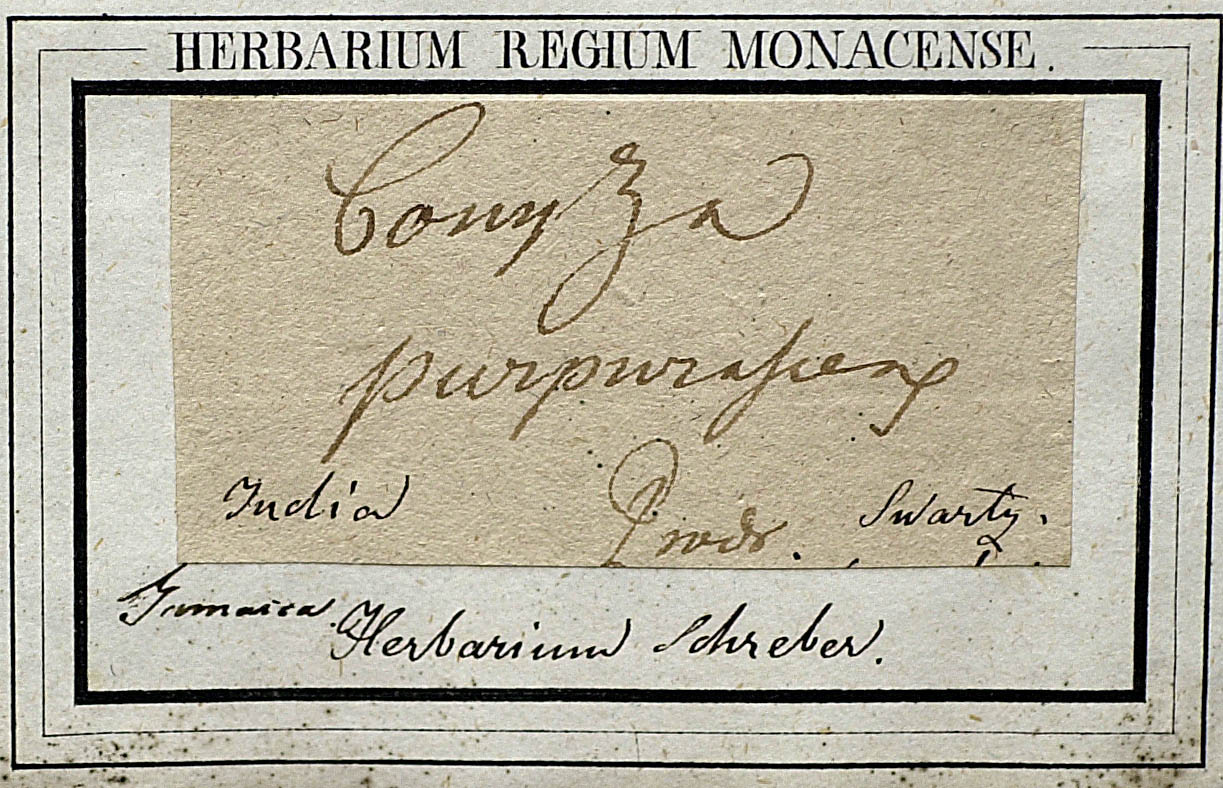 HERBARIUM REGIUM MONACENSE.
Conyza
purpurascens
India Prodr. Swartz.
Jamaica. Herbarium Schreber.